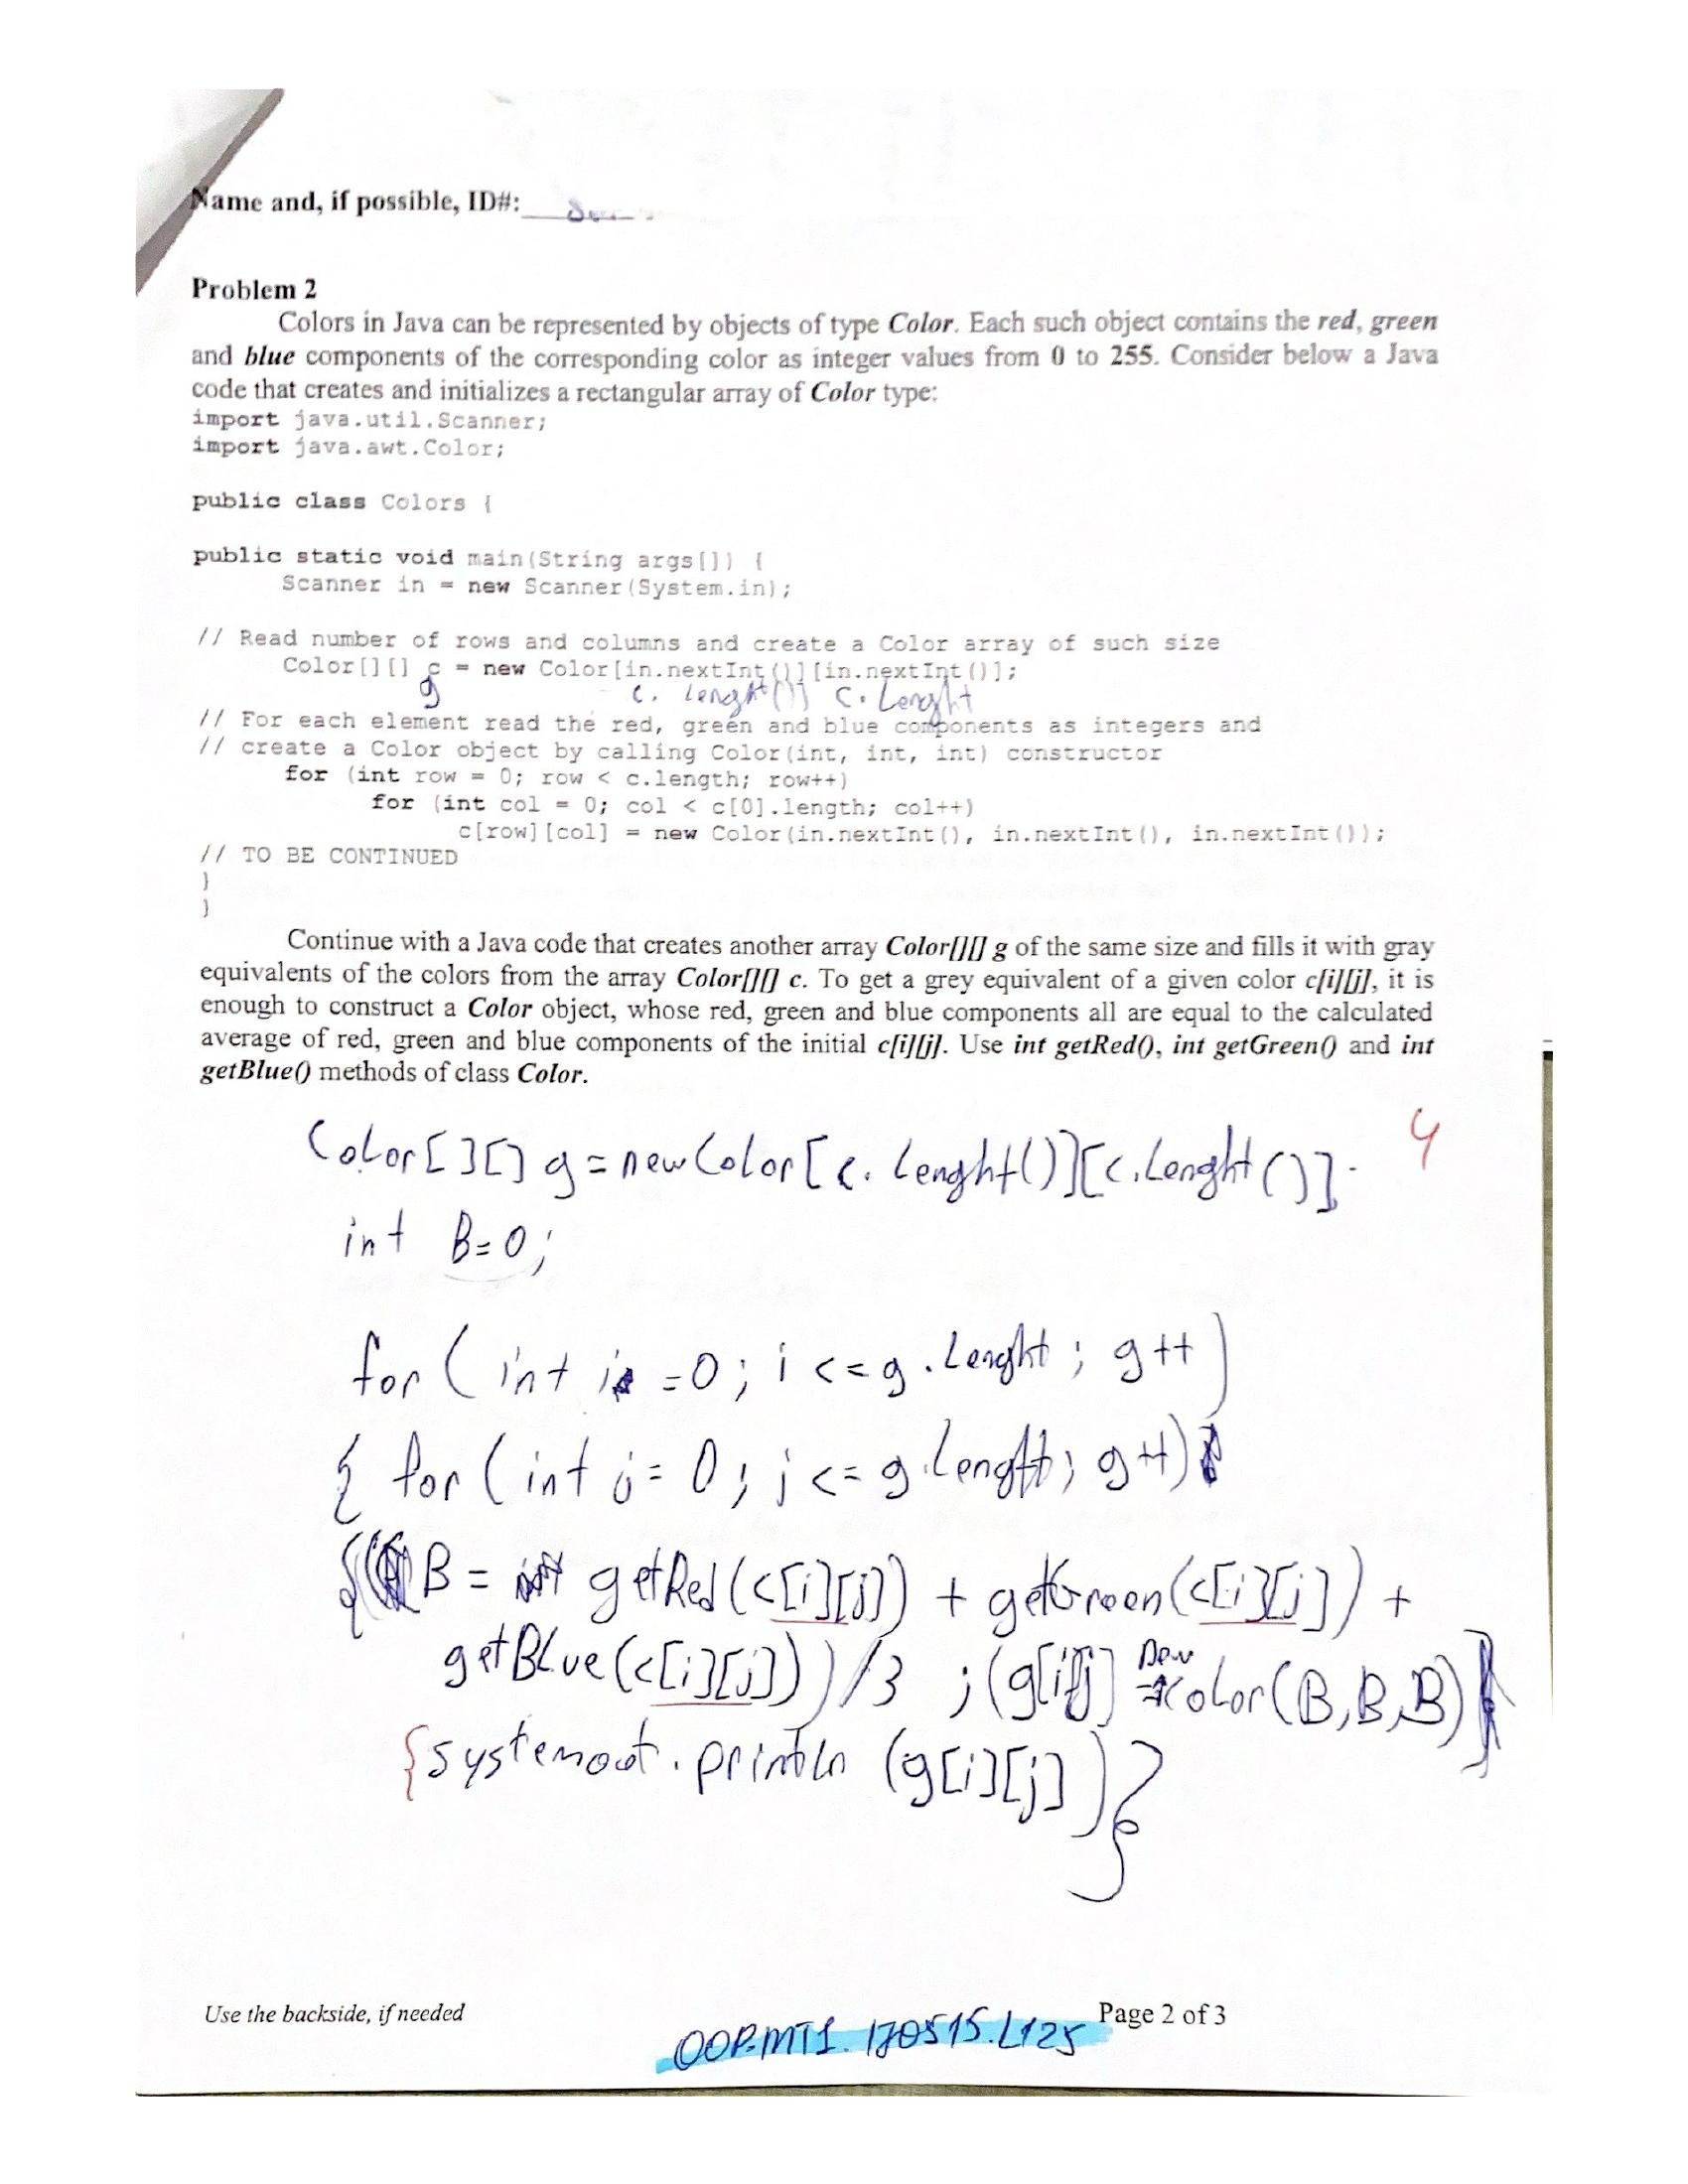 Name and, if possible, ID#:
Problem 2
Colors in Java can be represented by objects of type Color. Each such object contains the red, green
and blue components of the corresponding color as integer values from 0 to 255. Consider below a Java
code that creates and initializes a rectangular array of Color type:
import java.util.Scanner;
import java.awt.Color;
public class Colors {
public static void main(String args[]) {
Scanner in = new Scanner(System.in);
// Read number of rows and columns and create a Color array of such size
Color[][] c = new Color[in.nextInt()][in.nextInt()];
g c. Lenght()] C. Lenght
// For each element read the red, green and blue components as integers and
// create a Color object by calling Color(int, int, int) constructor
for (int row = 0; row < c.length; row++)
for (int col = 0; col < c[0].length; col++)
c[row][col] = new Color(in.nextInt(), in.nextInt(), in.nextInt());
// TO BE CONTINUED
}
}
Continue with a Java code that creates another array Color[][] g of the same size and fills it with gray
equivalents of the colors from the array Color[][] c. To get a grey equivalent of a given color c[i][j], it is
enough to construct a Color object, whose red, green and blue components all are equal to the calculated
average of red, green and blue components of the initial c[i][j]. Use int getRed(), int getGreen() and int
getBlue() methods of class Color.
Color[][] g = new Color[c. Lenght()][c.Lenght()]. 4
int B=0;
for ( int i =0; i <= g . Lenght ; g++ )
{ for ( int j = 0 ; j <= g.Lenght; g++)
{( B = getRed(c[i][j]) + getGreen(c[i][j]) +
getBlue(c[i][j]))/3 ; (g[i][j] = new Color(B,B,B)}
{systemout.println (g[i][j])}
}
Use the backside, if needed
Page 2 of 3
OOP.MT1.170515.L125